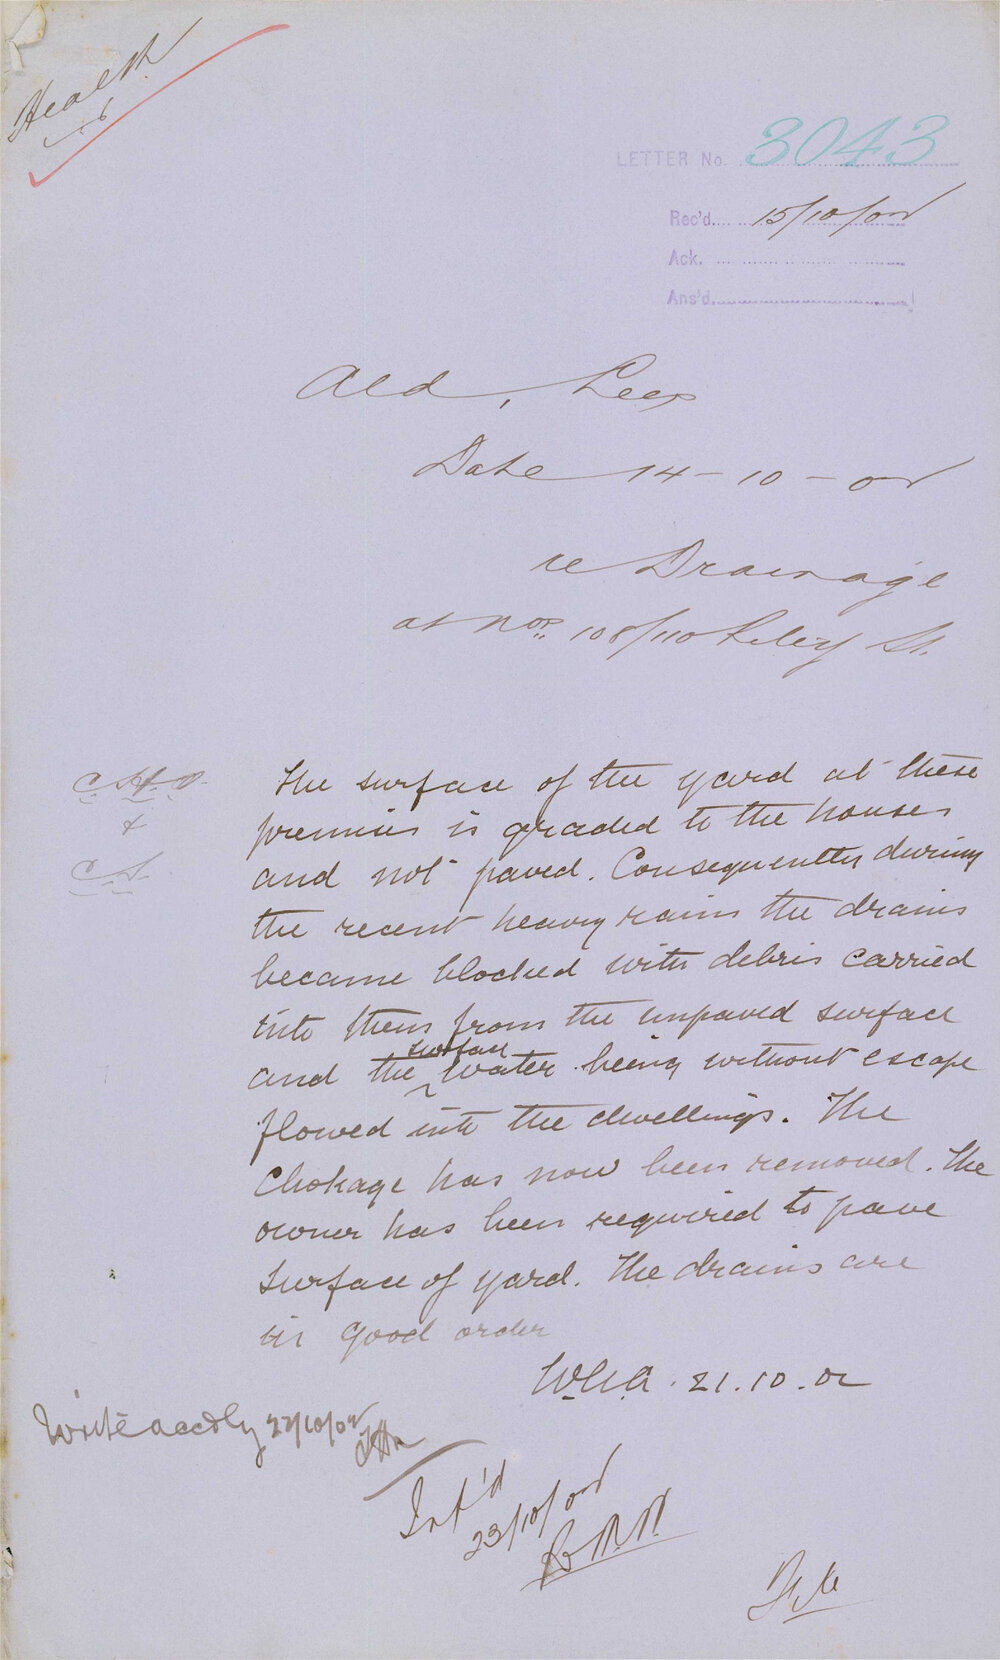 Health
LETTER No. 3043
Rec'd. 15/10/02
Ack.
Ans'd.
Ald, Lees
Date 14-10-02
re Drainage
at Nos. 108/110 Riley St.
C.H.O.
&
C.S.
The surface of the yard at these
premises is graded to the houses
and not paved. Consequently during
the recent heavy rains the drains
became blocked with debris carried
into them from the unpaved surface
and the surface water being without escape
flowed into the dwellings. The
Chokage has now been removed. The
owner has been required to pave
surface of yard. The drains are
in good order
W.G.A. 21.10.02
Write accdly 22/10/02
Inf'd
23/10/02
File